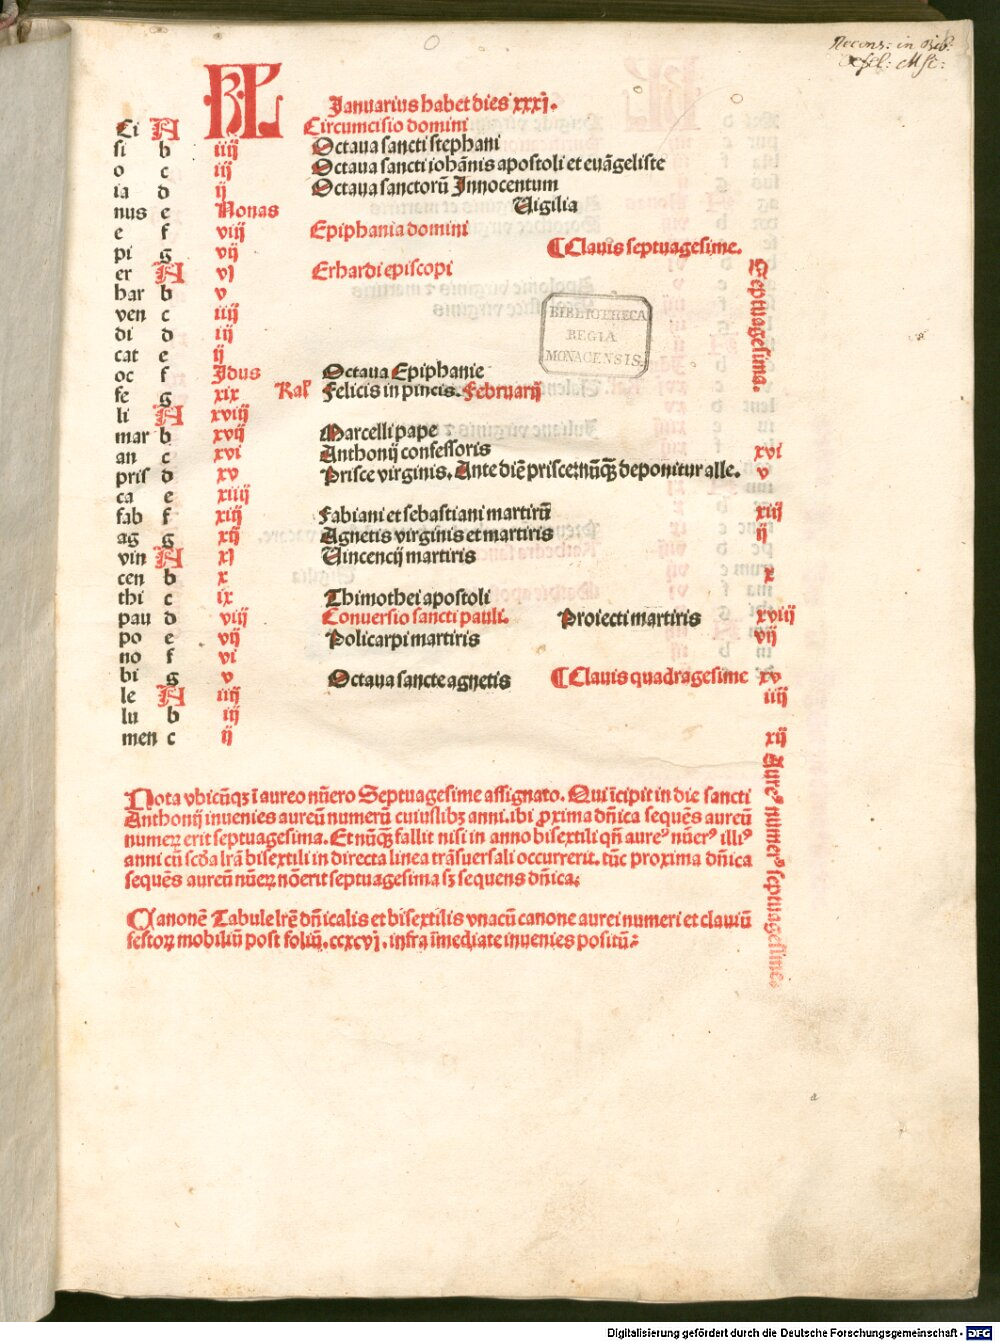 Januarius habet dies xxxj.
Ci A KL Circumcisio domini
si b iiij Octaua sancti stephani
o c iij Octaua sancti iohānis apostoli et euāgeliste
ia d ij Octaua sanctorū Innocentum
nus e Nonas Uigilia
e f viij Epiphania domini
pi g vij ¶ Clauis septuagesime.
er A vj Erhardi episcopi
har b v
ven c iiij
di d iij
cat e ij
oc f Idus Octaua Epiphanie
fe g xix Kal' Felicis in pincis. Februarij
li A xviij
mar b xvij Marcelli pape
an c xvi Anthonij confessoris xvi
pris d xv Prisce virginis. Ante diē prisce nūqꝫ deponitur alle. v
ca e xiiij
fab f xiij Fabiani et sebastiani martirū xiij
ag g xij Agnetis virginis et martiris ij
vin A xj Uincencij martiris
cen b x x
thi c ix Thimothei apostoli
pau d viij Conuersio sancti pauli. Proiecti martiris xviij
po e vij Policarpi martiris vij
no f vi
bi g v Octaua sancte agnetis ¶ Clauis quadragesime xv
le A iiij iiij
lu b iij
men c ij xij
Septuagesima.
Aureꝰ numerꝰ septuagesime
Nota vbicūqꝫ ī aureo nūero Septuagesime assignato. Qui īcipit in die sancti
Anthonij inuenies aureū numerū cuiuslibꝫ anni. ibi proxima dn̄ica sequēs aureū
numeꝝ erit septuagesima. Et nūqꝫ fallit nisi in anno bisextili qn̄ aureꝰ nūerꝰ illiꝰ
anni cū scd̄a lr̄a bisextili in directa linea trāsuersali occurrerit. tūc proxima dn̄ica
sequēs aureū nūeꝝ nō erit septuagesima sꝫ sequens dn̄ica.
Canonē Tabule lr̄e dn̄icalis et bisextilis vnacū canone aurei numeri et clauiū
festoꝝ mobiliū post foliū. ccxcvj. infra īmediate inuenies positū.
BIBLIOTHECA
REGIA
MONACENSIS.
Digitalisierung gefördert durch die Deutsche Forschungsgemeinschaft - DFG